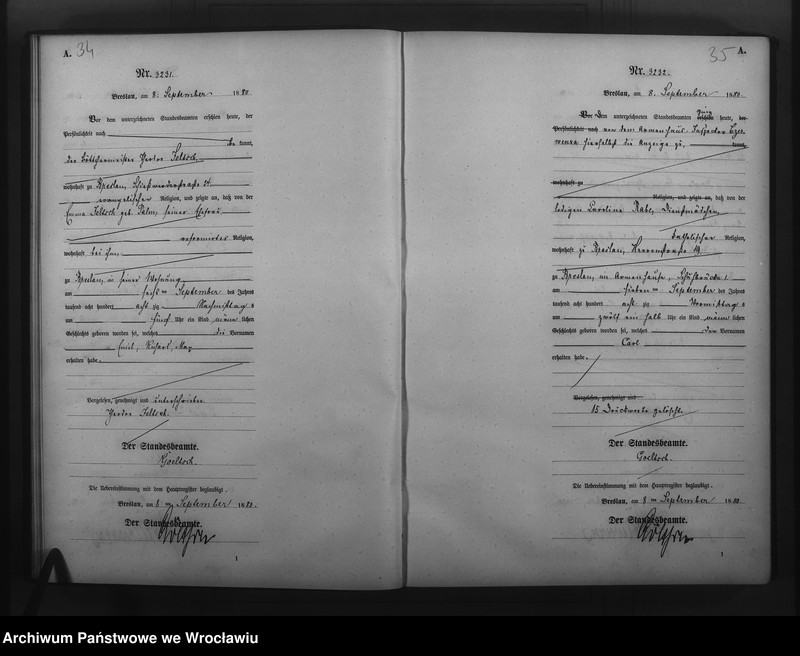 A. 34
Nr. 3231.
Breslau, am 8. September 1880
Vor dem unterzeichneten Standesbeamten erschien heute, der
Persönlichkeit nach
kannt,
der Böttchermeister Theodor
wohnhaft zu Breslau,
evangelischer Religion, und zeigte an, daß von der
Emma geb. Palm, seiner Ehefrau
reformirter Religion,
wohnhaft bei ihm
zu Breslau, in seiner Wohnung
am sechsten September des Jahres
tausend acht hundert achtzig Nachmittags
um fünf Uhr ein Kind männlichen
Geschlechts geboren worden sei, welches die Vornamen
Emil, Richard, Max
erhalten habe.
Vorgelesen, genehmigt und unterschrieben
Theodor
Der Standesbeamte.
Die Uebereinstimmung mit dem Hauptregister beglaubigt.
Breslau, am 8ten September 1880.
Der Standesbeamte.
1
35 A.
Nr. 3232.
Breslau, am 8. September 1880.
Vor dem unterzeichneten Standesbeamten heute,
Persönlichkeit nach von dem Armenhaus-Inspector
hierselbst die Anzeige
kannt,
wohnhaft zu
Religion, und zeigte an, daß von der
ledigen Caroline Rabe, Dienstmädchen,
katholischer Religion,
wohnhaft zu Breslau, Herrenstraße 19
zu Breslau, im Armenhause,
am sieben ten September des Jahres
tausend acht hundert acht zig Vormittags
um zwölf ein halb Uhr ein Kind männlichen
Geschlechts geboren worden sei, welches den Vornamen
Carl
erhalten habe.
Vorgelesen, genehmigt und
15 Druckworte gelöscht.
Der Standesbeamte.
Die Uebereinstimmung mit dem Hauptregister beglaubigt.
Breslau, am 8ten September 1880.
Der Standesbeamte.
1
Archiwum Państwowe we Wrocławiu